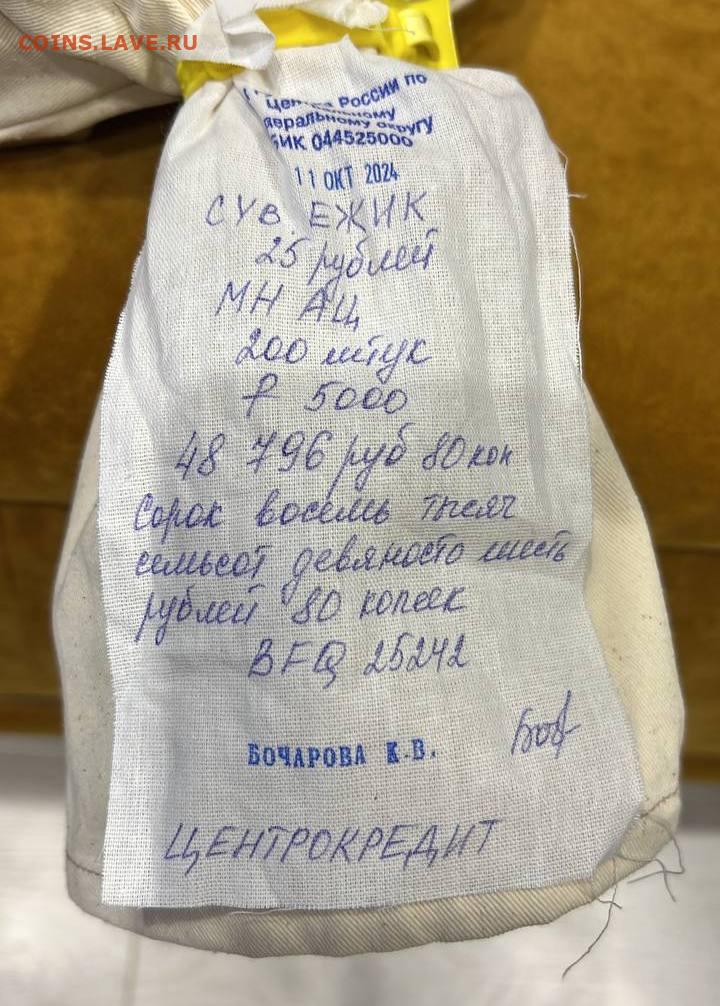 COINS.LAVE.RU
России по
округу
БИК 044525000
11 ОКТ 2024
СУВ. ЕЖИК
25 рублей
МН АЦ
200 штук
₽ 5000
48 796 руб 80 коп
Сорок восемь тысяч
семьсот девяносто шесть
рублей 80 копеек
BFQ 25242
БОЧАРОВА К.В.
ЦЕНТРОКРЕДИТ